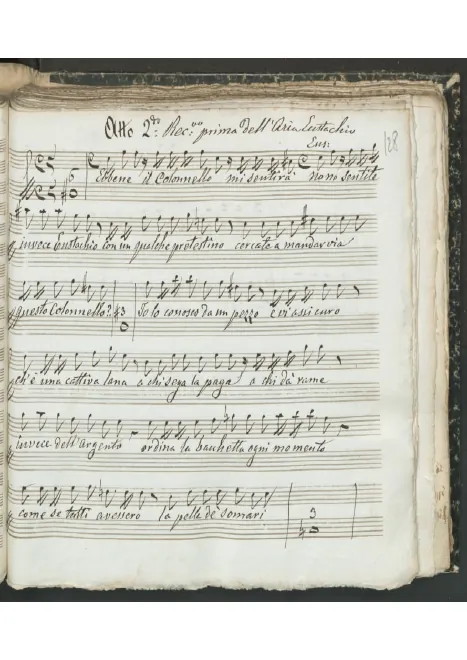 Atto 2do Rec.vo prima dell'Aria Eustachio
Eus:
128
Ebbene il Colonnello mi sentirà no no sentite
invece Eustachio con un qualche pretestino cercate a mandar via
questo Colonnello? Io lo conosco da un pezzo e vi assicuro
ch'è una cattiva lana a chi sega la paga a chi dà rame
invece dell'argento ordina la banchetta ogni momento
come se tutti avessero la pelle de somari